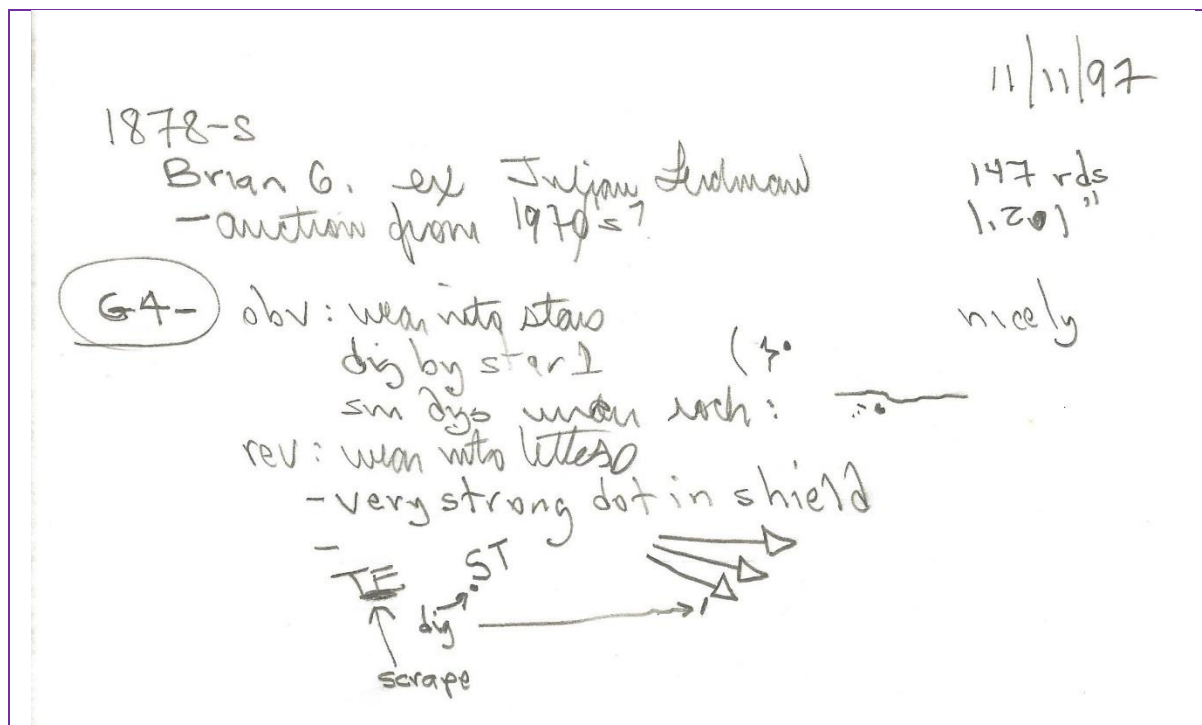 11/11/97
1878-S
Brian G. ex Julian Leidman
147 rds
-auction from 1970s?
1.201"
G4- obv: wear into stars
nicely
dig by star 1
sm digs under rock:
rev: wear into letters
-very strong dot in shield
-
TE
ST
dig
scrape